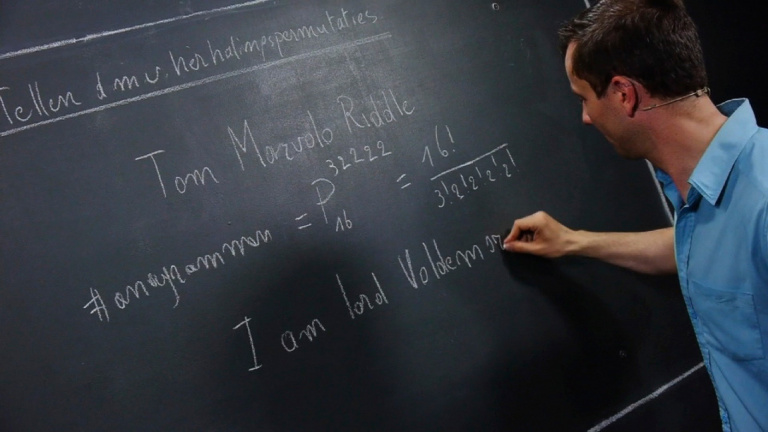 Tellen d.m.v. herhalingspermutaties
Tom Marvolo Riddle
#anagrammen = P̄ 32222 16 = 16! / 3!2!2!2!2!
I am lord Voldemor